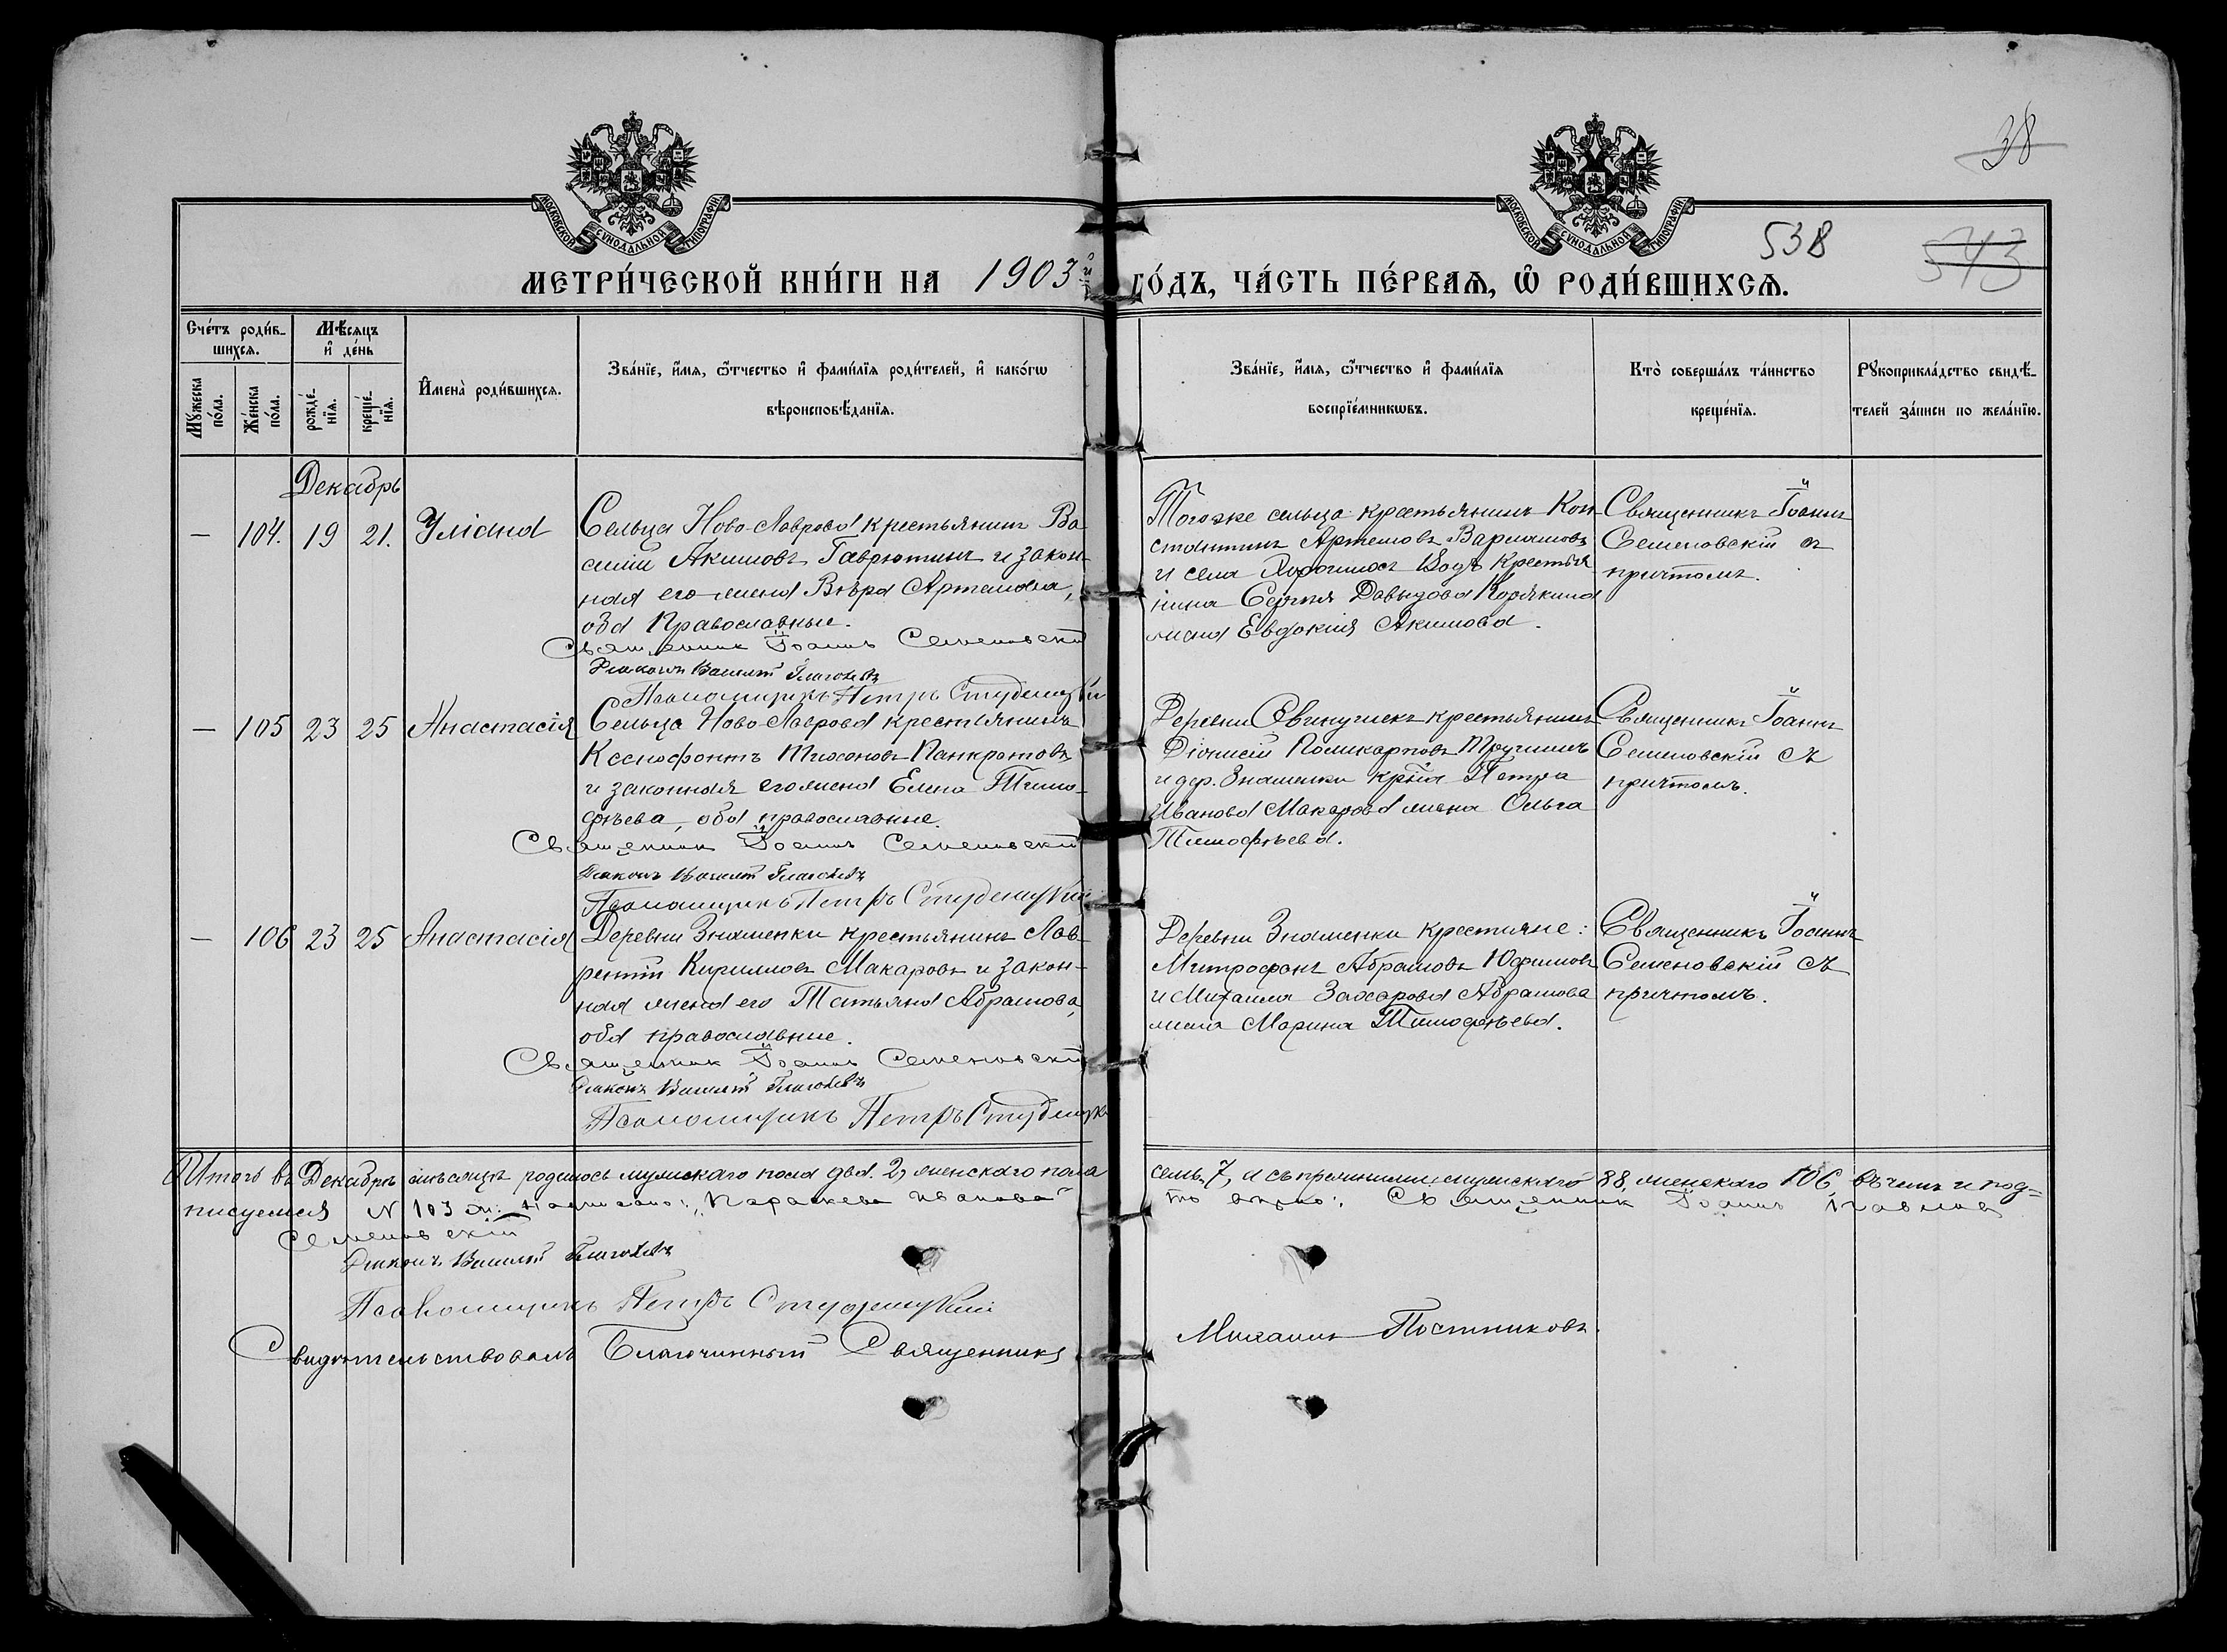 38
МОСКОВСКОЙ СУНОДАЛЬНОЙ ТИПОГРАФІИ
МОСКОВСКОЙ СУНОДАЛЬНОЙ ТИПОГРАФІИ
538
543
МЕТРИ́ЧЕСКОЙ КНИ́ГИ НА 1903й ГО́ДЪ, ЧА́СТЬ ПЕ́РВАѦ, Ѡ҆ РОДИ́ВШИХСѦ.
Сче́тъ роди́в-
шихсѧ.
Мѣ́сѧцъ
и҆ де́нь
Мꙋ́жеска
по́ла.
Же́нска
по́ла.
рожде́-
нїѧ.
креще́-
нїѧ.
И҆мена̀ роди́вшихсѧ.
Зва́нїе, и҆́мѧ, ѻ҆́тчество и҆ фами́лїѧ роди́телей, и҆ како́гѡ
вѣроисповѣ́данїѧ.
Зва́нїе, и҆́мѧ, ѻ҆́тчество и҆ фами́лїѧ
воспрїе́мникѡвъ.
Кто̀ соверша́лъ та́инство
креще́нїѧ.
Рꙋкоприкла́дство свидѣ́-
телей за́писи по жела́нїю.
Декабрь
— 104. 19 21. Уліана
Сельца Ново-Лаврова крестьянинъ Ва
силій Акимовъ Гаврютинъ и закон-
ная его жена Вѣра Артемова,
оба Православные.
Священник Іоаннъ Семеновскій
Діаконъ Василій Глаголевъ
Псаломщикъ Петръ Студенецкій
Тогоже сельца крестьянинъ Кон
стантинъ Артемовъ Варламовъ
и села Хорошихъ Водъ крестья
нина Сергея Давыдова Корякина
жена Евдокія Акимова.
Священникъ Іоаннъ
Семеновскій съ
причтомъ.
— 105 23 25 Анастасія
Сельца Ново-Лаврова крестьянинъ
Ксенофонтъ Тихоновъ Панкратовъ
и законная его жена Елена Тимо-
фѣева, оба православные.
Священник Іоаннъ Семеновскій
Діаконъ Василій Глаголевъ
Псаломщикъ Петръ Студенецкій
Деревни крестьянинъ
Діонисій Поликарповъ
и дер. Знаменки кр-на Петра
Иванова Макарова жена Ольга
Тимофѣева.
Священникъ Іоаннъ
Семеновскій съ
причтомъ.
— 106 23 25 Анастасія
Деревни Знаменки крестьянинъ Лав-
рентій Кирилловъ Макаровъ и закон-
ная жена его Татьяна Абрамова,
оба православные.
Священник Іоаннъ Семеновскій
Діаконъ Василій Глаголевъ
Псаломщикъ Петръ Студенецкій
Деревни Знаменки крестьяне:
Митрофанъ Абрамовъ Юфимовъ
и Михаила Захарова Абрамова
жена Марина Тимофѣева.
Священникъ Іоаннъ
Семеновскій съ
причтомъ.
Итого въ Декабрѣ мѣсяцѣ родилось мужскаго пола два. 2, женскаго пола семь, 7, а съ прежними: мужскаго 88, женскаго 106, въ чемъ и под=
писуемся № 103 написано: „Параскева Иванова" то вѣрно: Священник Іоаннъ Павловъ
Семеновскій
Діаконъ Василій Глаголевъ
Псаломщикъ Петръ Студенецкій
Свидѣтельствовалъ Благочинный Священникъ Михаилъ Постниковъ.